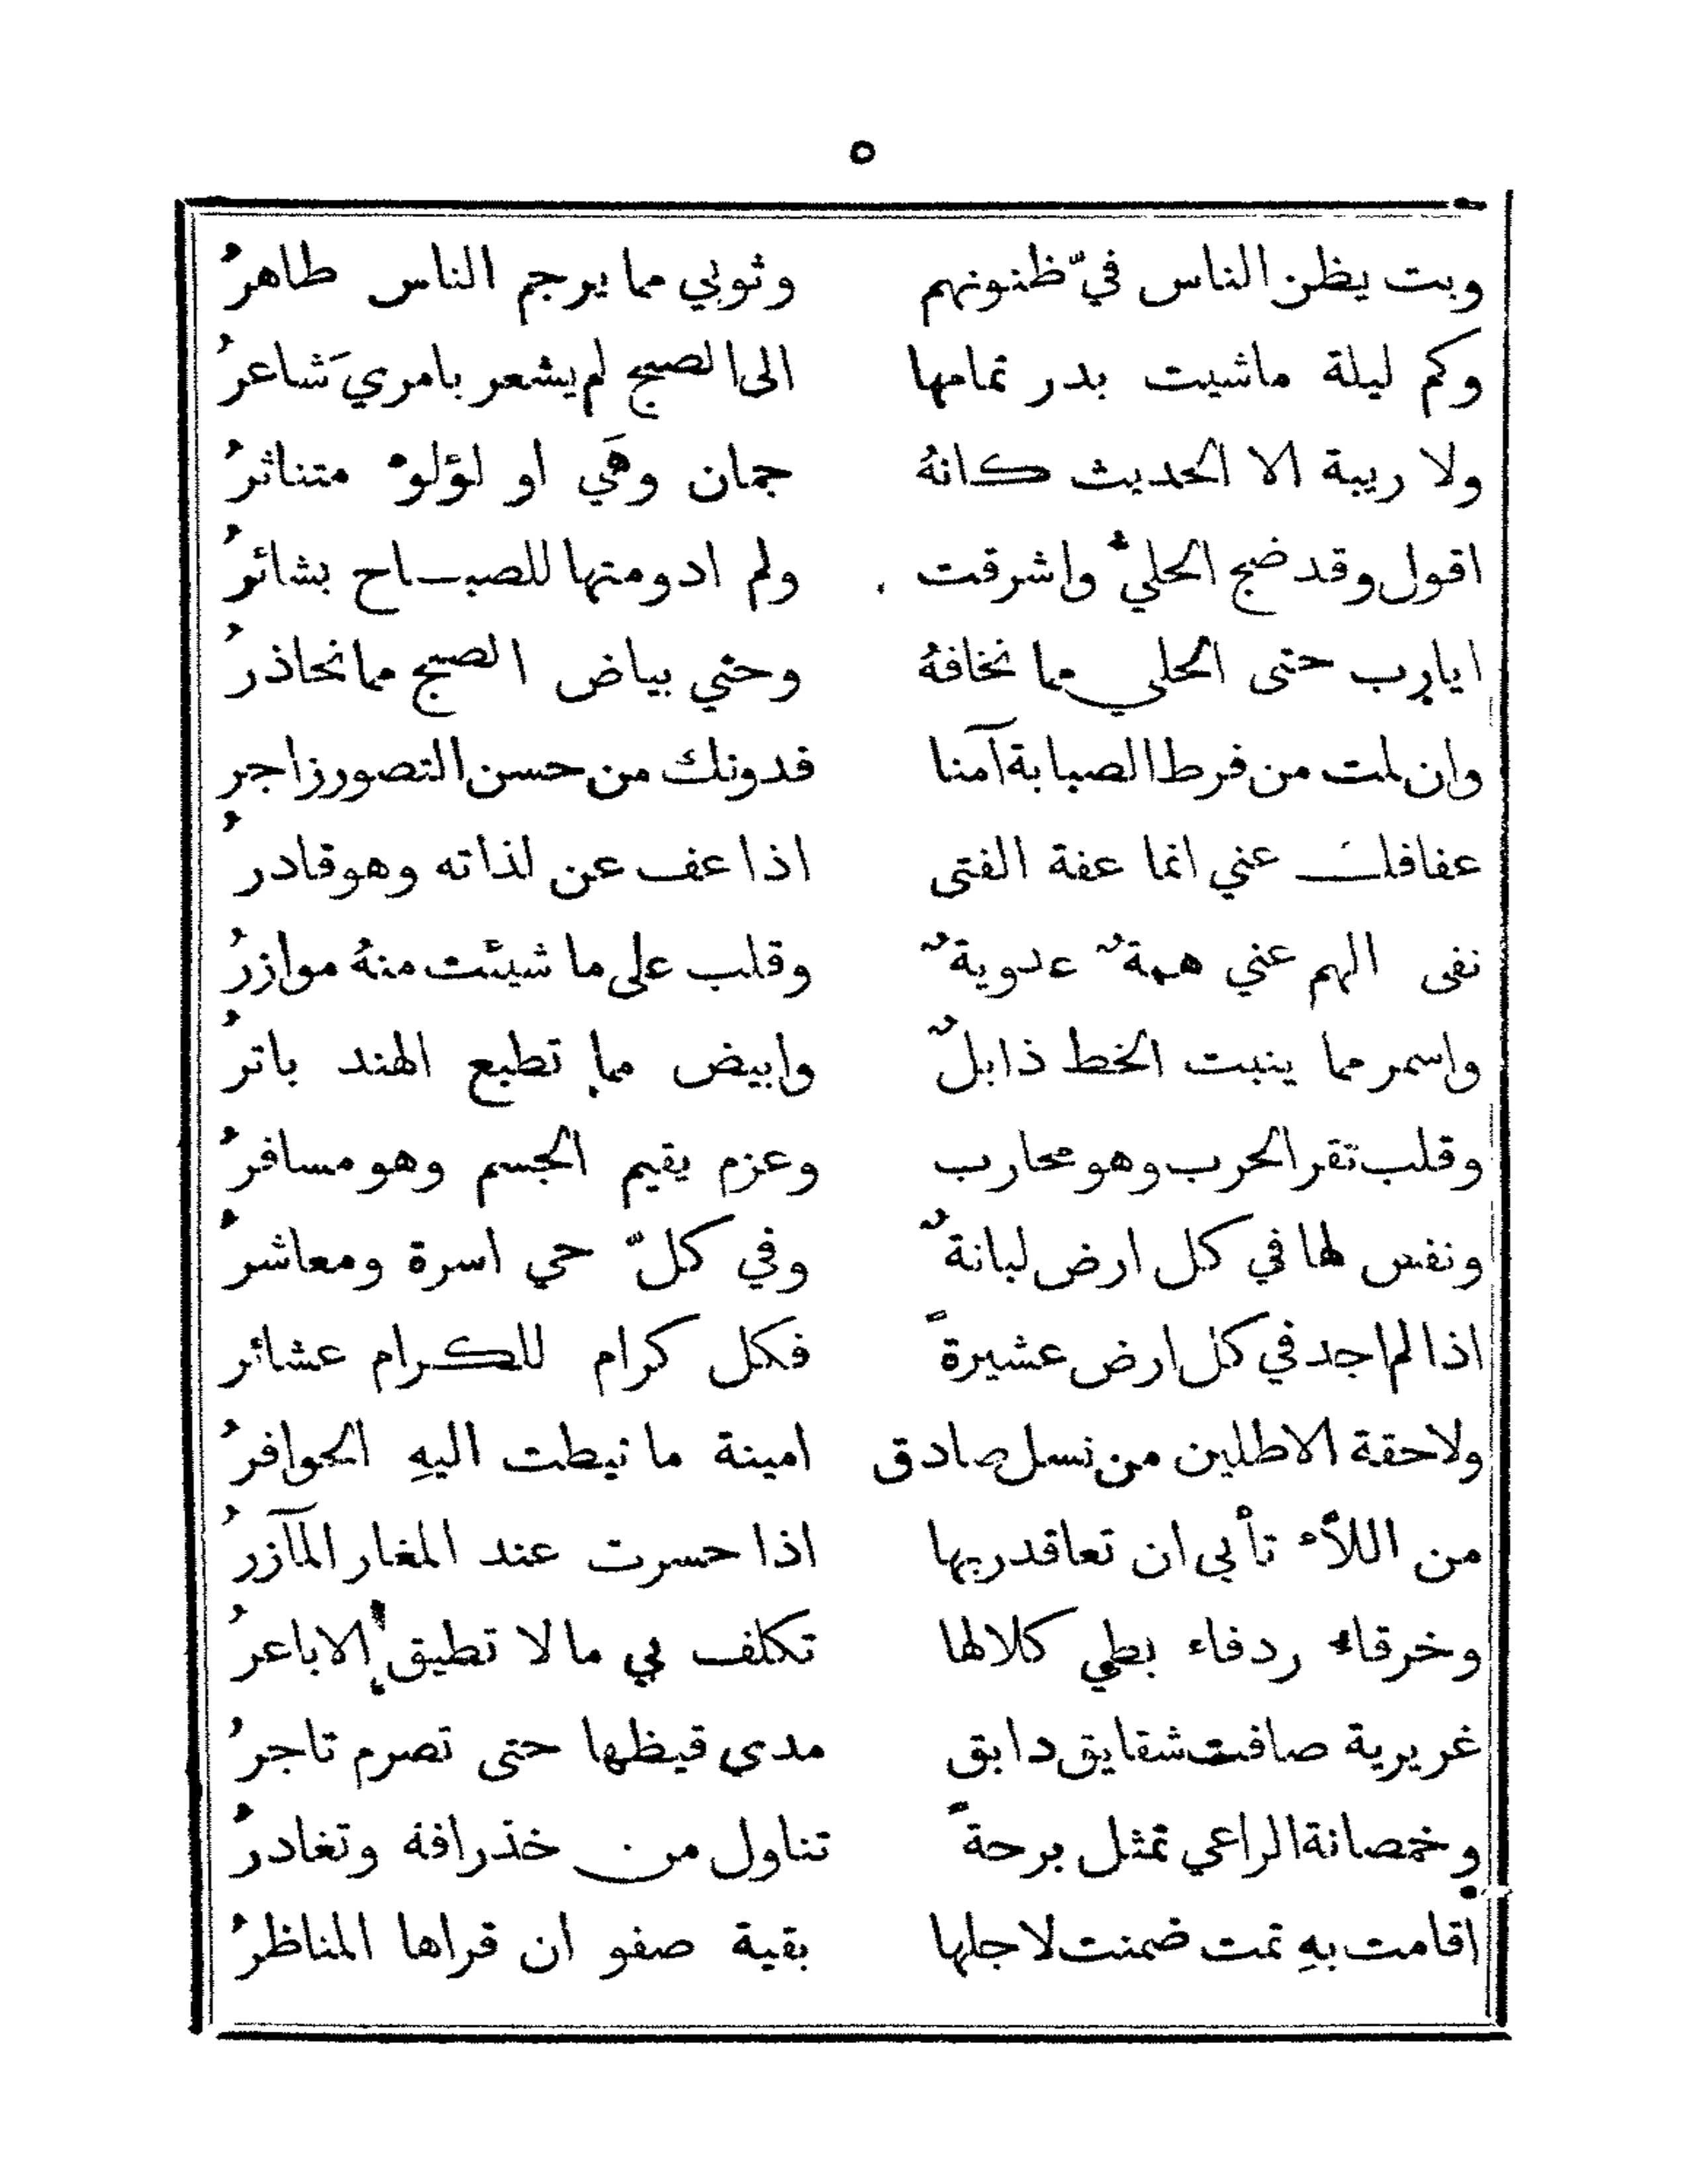 ٥
وبت يظن الناس فيّ ظنونهم وثوبي مما يرجم الناس طاهرُ
وكم ليلة ماشيت بدر تمامها الى الصبح لم يشعر بامريَ شاعرُ
ولا ريبة الا الحديث كانهُ جمان وهَي او لؤلوءٌ متناثرُ
اقول وقد ضج الحليُّ واشرقت ولم ادو منها للصباح بشائرُ
ايا رب حتى الحلي مما نخافهُ وحتي بياض الصبح مما نحاذرُ
وان لمت من فرط الصبابة آمنا فدونك من حسن التصور زاجر
عفافكَ عني انما عفة الفتى اذا عف عن لذاته وهو قادرُ
نفى الهم عني همةٌ عدويةٌ وقلب على ما شيئت منهُ موازرُ
واسمر مما ينبت الخط ذابلٌ وابيض مما تطبع الهند باترُ
وقلب تقر الحرب وهو محارب وعزم يقيم الجسم وهو مسافرُ
ونفس لها في كل ارض لبانةٌ وفي كلّ حي اسرة ومعاشرُ
اذا لم اجد في كل ارض عشيرةً فكل كرام للكرام عشائر
ولاحقة الاطلين من نسل صادق امينة ما نيطت اليهِ الحوافرُ
من اللأء تأبى ان تعاقد ربها اذا حسرت عند المغار المآزرُ
وخرقاء ردفاء بطي كلالها تكلف بي ما لا تطيق الاباعرُ
غريرية صافت شقايق دابق مدى قيظها حتى تصرم تاجرُ
وخمصانة الراعي تمثل برحةً تناول من خذرافة وتغادرُ
اقامت بهِ تمت ضمنت لاجلها بقية صفو ان قراها المناظرُ